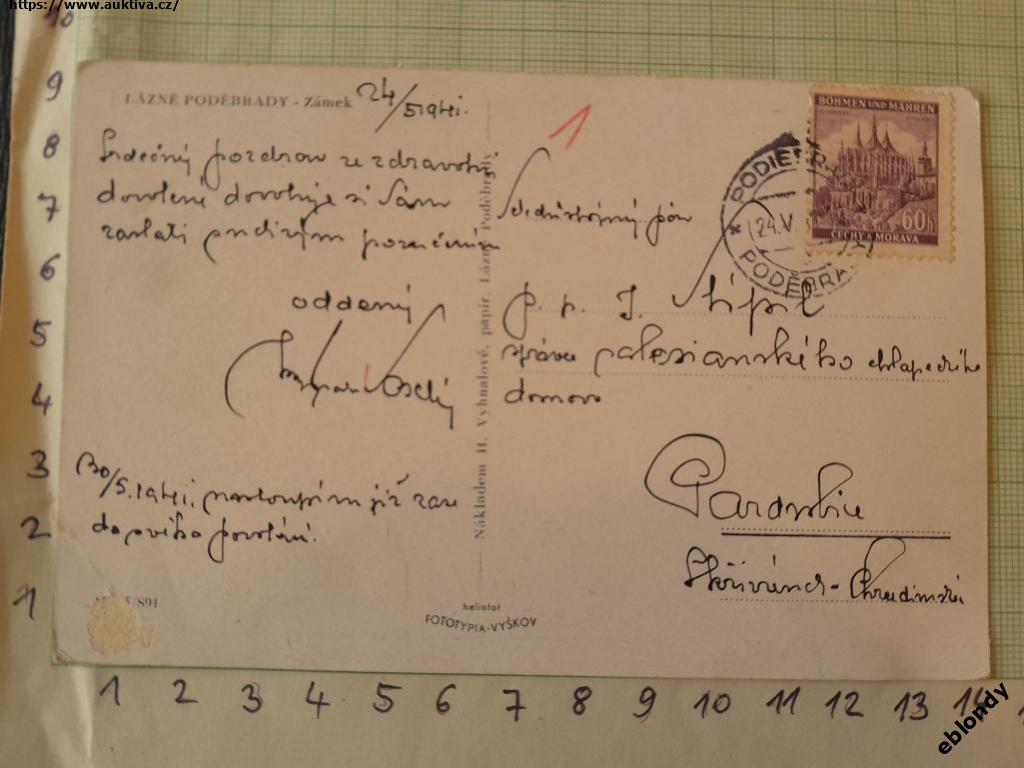 https://www.auktiva.cz/
LÁZNĚ PODĚBRADY - Zámek
24/5 1941.
Srdečný pozdrav ze zdravotní
dovolené dovoluje si Vám
zaslati
oddaný
30/5. 1941. nastoupím již zase
do svého povolání.
5/891
Nákladem H. Vyhnalové, papír. Lázně Poděbrady
heliofot
FOTOTYPIA-VYŠKOV
1
BÖHMEN UND MÄHREN
60h
ČECHY A MORAVA
PODIEBR
24.V
PODĚBRA
Veledůstojný pán
P. p. J. Stipl
správce salesianského chlapeckého
domova
Pardubice
Skřivánek - Chrudimská
10
9
8
7
6
5
4
3
2
1
1 2 3 4 5 6 7 8 9 10 11 12 13 14
eblondy